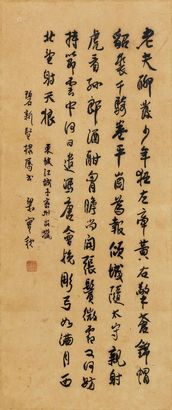 老夫聊發少年狂左牽黃右擎蒼錦帽
貂裘千騎卷平岡為報傾城隨太守親射
虎看孫郎酒酣胸膽尚開張鬢微霜又何妨
持節雲中何日遣馮唐會挽彫弓如滿月西
北望射天狼
東坡江城子密州出獵
梁寒秋